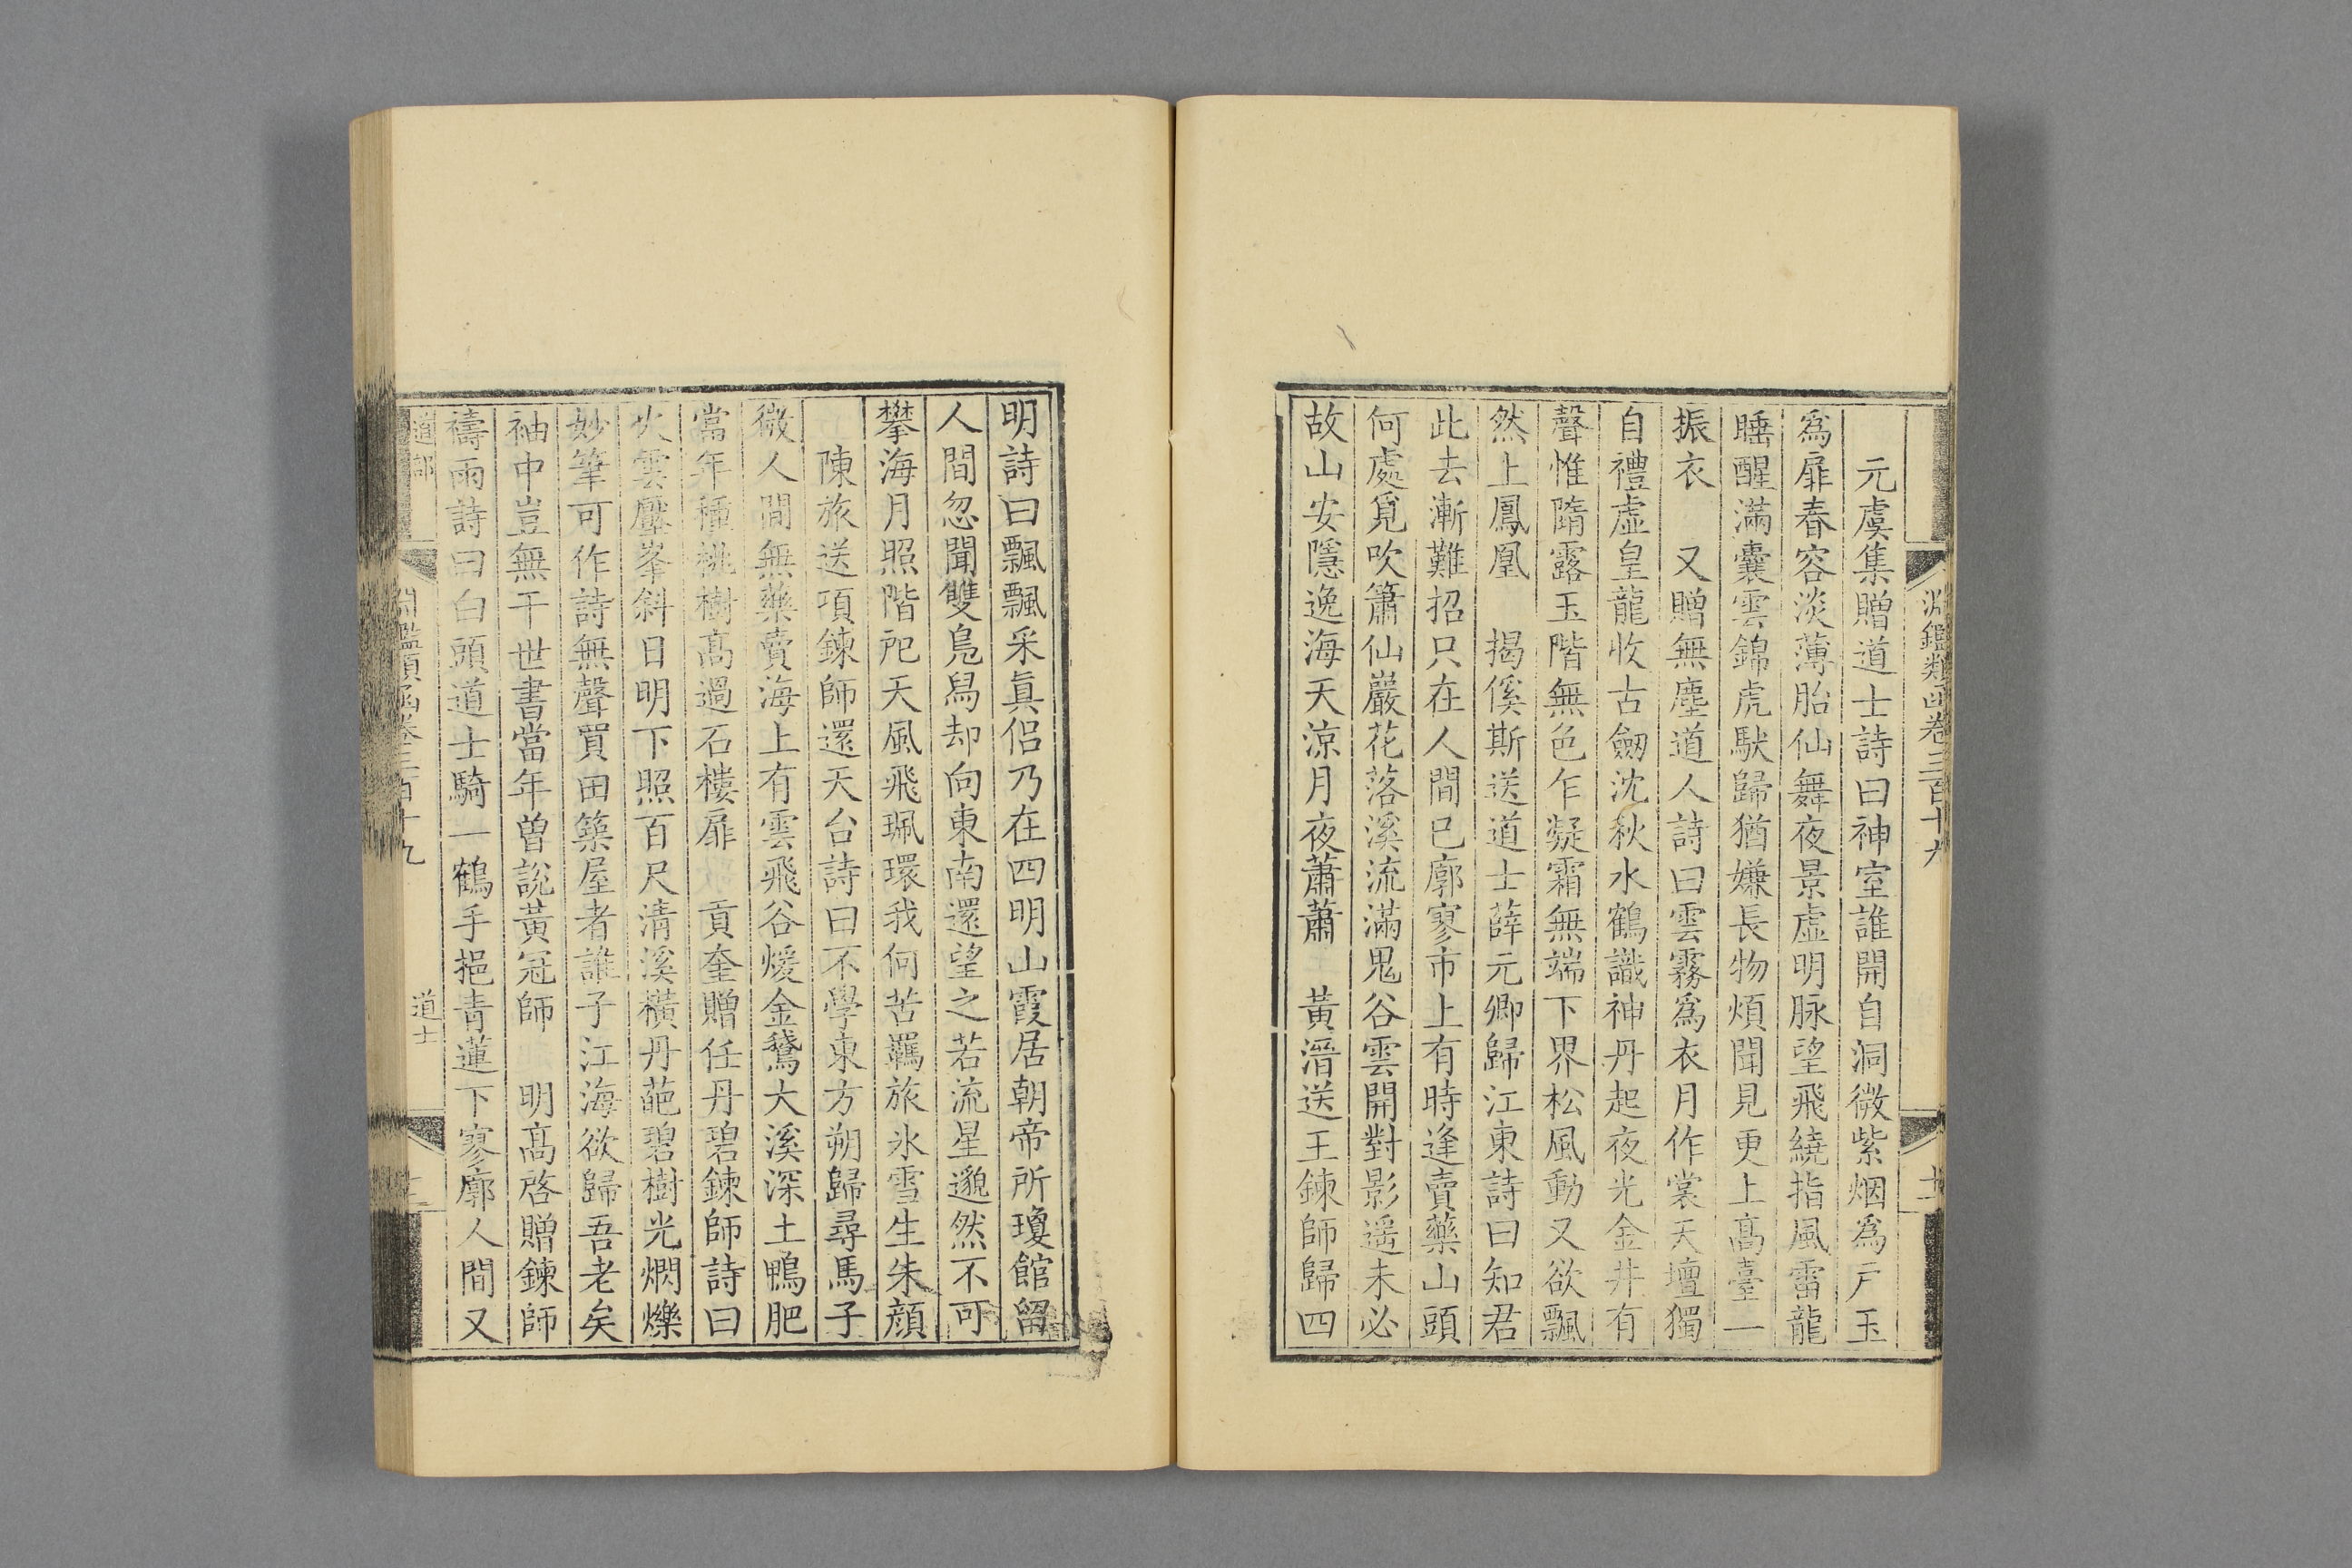 淵鑑類函卷三百十九
元虞集贈道士詩曰神室誰開自洞微紫烟爲戸玉
爲扉春容淡薄胎仙舞夜景虛明脉望飛繞指風雷龍
睡醒滿囊雲錦虎馱歸猶嫌長物煩聞見更上髙臺一
振衣　又贈無塵道人詩曰雲霧爲衣月作裳天壇獨
自禮虛皇龍收古劒沈秋水鶴識神丹起夜光金井有
聲惟隋露玉階無色乍凝霜無端下界松風動又欲飄
然上鳳凰　揭傒斯送道士薛元卿歸江東詩曰知君
此去漸難招只在人間已廓寥市上有時逢賣藥山頭
何處覓吹簫仙巖花落溪流滿鬼谷雲開對影遥未必
故山安隱逸海天涼月夜蕭蕭　黃溍送王鍊師歸四
明詩曰飄飄采眞侣乃在四明山霞居朝帝所瓊館留
人間忽聞雙鳬舄却向東南還望之若流星邈然不可
攀海月照階戺天風飛珮環我何苦羈旅氷雪生朱顔
陳旅送項鍊師還天台詩曰不學東方朔歸尋馬子
微人間無藥賣海上有雲飛谷煖金鵞大溪深土鴨肥
當年種桃樹髙過石樓扉　貢奎贈任丹碧鍊師詩曰
火雲壓峯斜日明下照百尺清溪橫丹葩碧樹光燜爍
妙筆可作詩無聲買田築屋者誰子江海欲歸吾老矣
袖中豈無干世書當年曾說黃冠師　明髙啓贈鍊師
禱雨詩曰白頭道士騎一鶴手挹青蓮下寥廓人間又
道部
淵鑑類函卷三百十九
道士